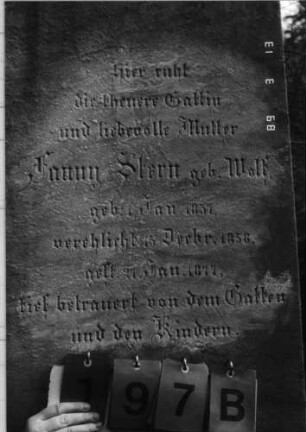 Hier ruht
die theuere Gattin
und liebevolle Mutter
Fanny Stern geb. Wolf,
geb. 1. Jan. 1837,
verehlicht 15. Decbr. 1858,
gest. 27. Jan. 1877,
tief betrauert von dem Gatten
und den Kindern.
197B